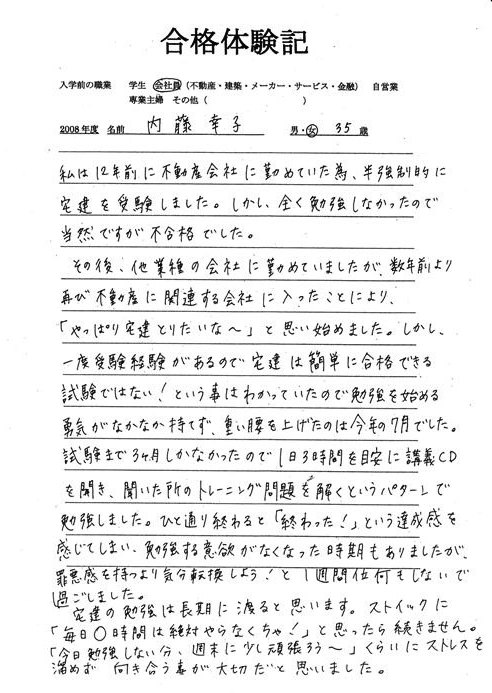 合格体験記
入学前の職業 学生 会社員 (不動産・建築・メーカー・サービス・金融) 自営業
専業主婦 その他 ( )
2008年度 名前 内藤 幸子 男・女 35歳
私は12年前に不動産会社に勤めていた為、半強制的に
宅建を受験しました。しかし、全く勉強しなかったので
当然ですが不合格でした。
その後、他業種の会社に勤めていましたが、数年前より
再び不動産に関連する会社に入ったことにより、
「やっぱり宅建とりたいな～」と思い始めました。しかし、
一度受験経験があるので宅建は簡単に合格できる
試験ではない!という事はわかっていたので勉強を始める
勇気がなかなか持てず、重い腰を上げたのは今年の7月でした。
試験まで3ヶ月しかなかったので1日3時間を目安に講義CD
を聞き、聞いた所のトレーニング問題を解くというパターンで
勉強しました。ひと通り終わると「終わった!」という達成感を
感じてしまい、勉強する意欲がなくなった時期もありましたが、
罪悪感を持つより気分転換しよう!と1週間位何もしないで
過ごしました。
宅建の勉強は長期に渡ると思います。ストイックに
「毎日〇時間は絶対やらなくちゃ!」と思ったら続きません。
「今日勉強しない分、週末に少し頑張ろう～」くらいにストレスを
溜めず 向き合う事が大切だと思いました。